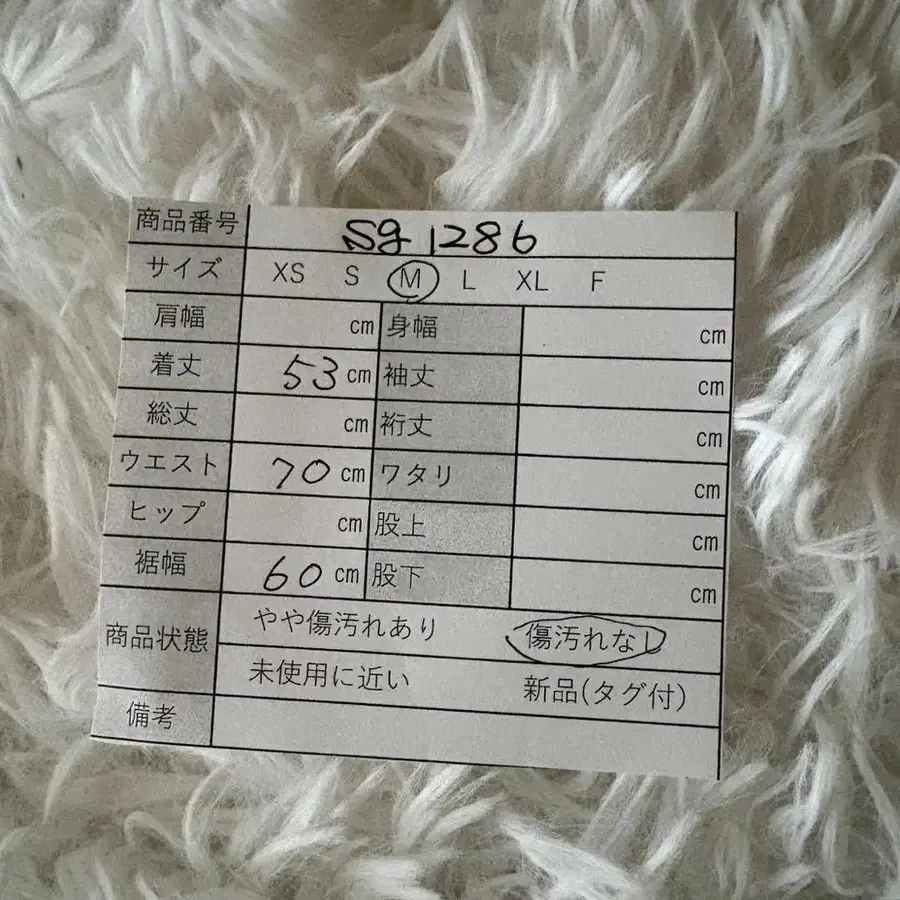 商品番号 Sg 1286
サイズ XS S M L XL F
肩幅 cm 身幅 cm
着丈 53 cm 袖丈 cm
総丈 cm 裄丈 cm
ウエスト 70 cm ワタリ cm
ヒップ cm 股上 cm
裾幅 60 cm 股下 cm
商品状態 やや傷汚れあり 傷汚れなし
未使用に近い 新品(タグ付)
備考